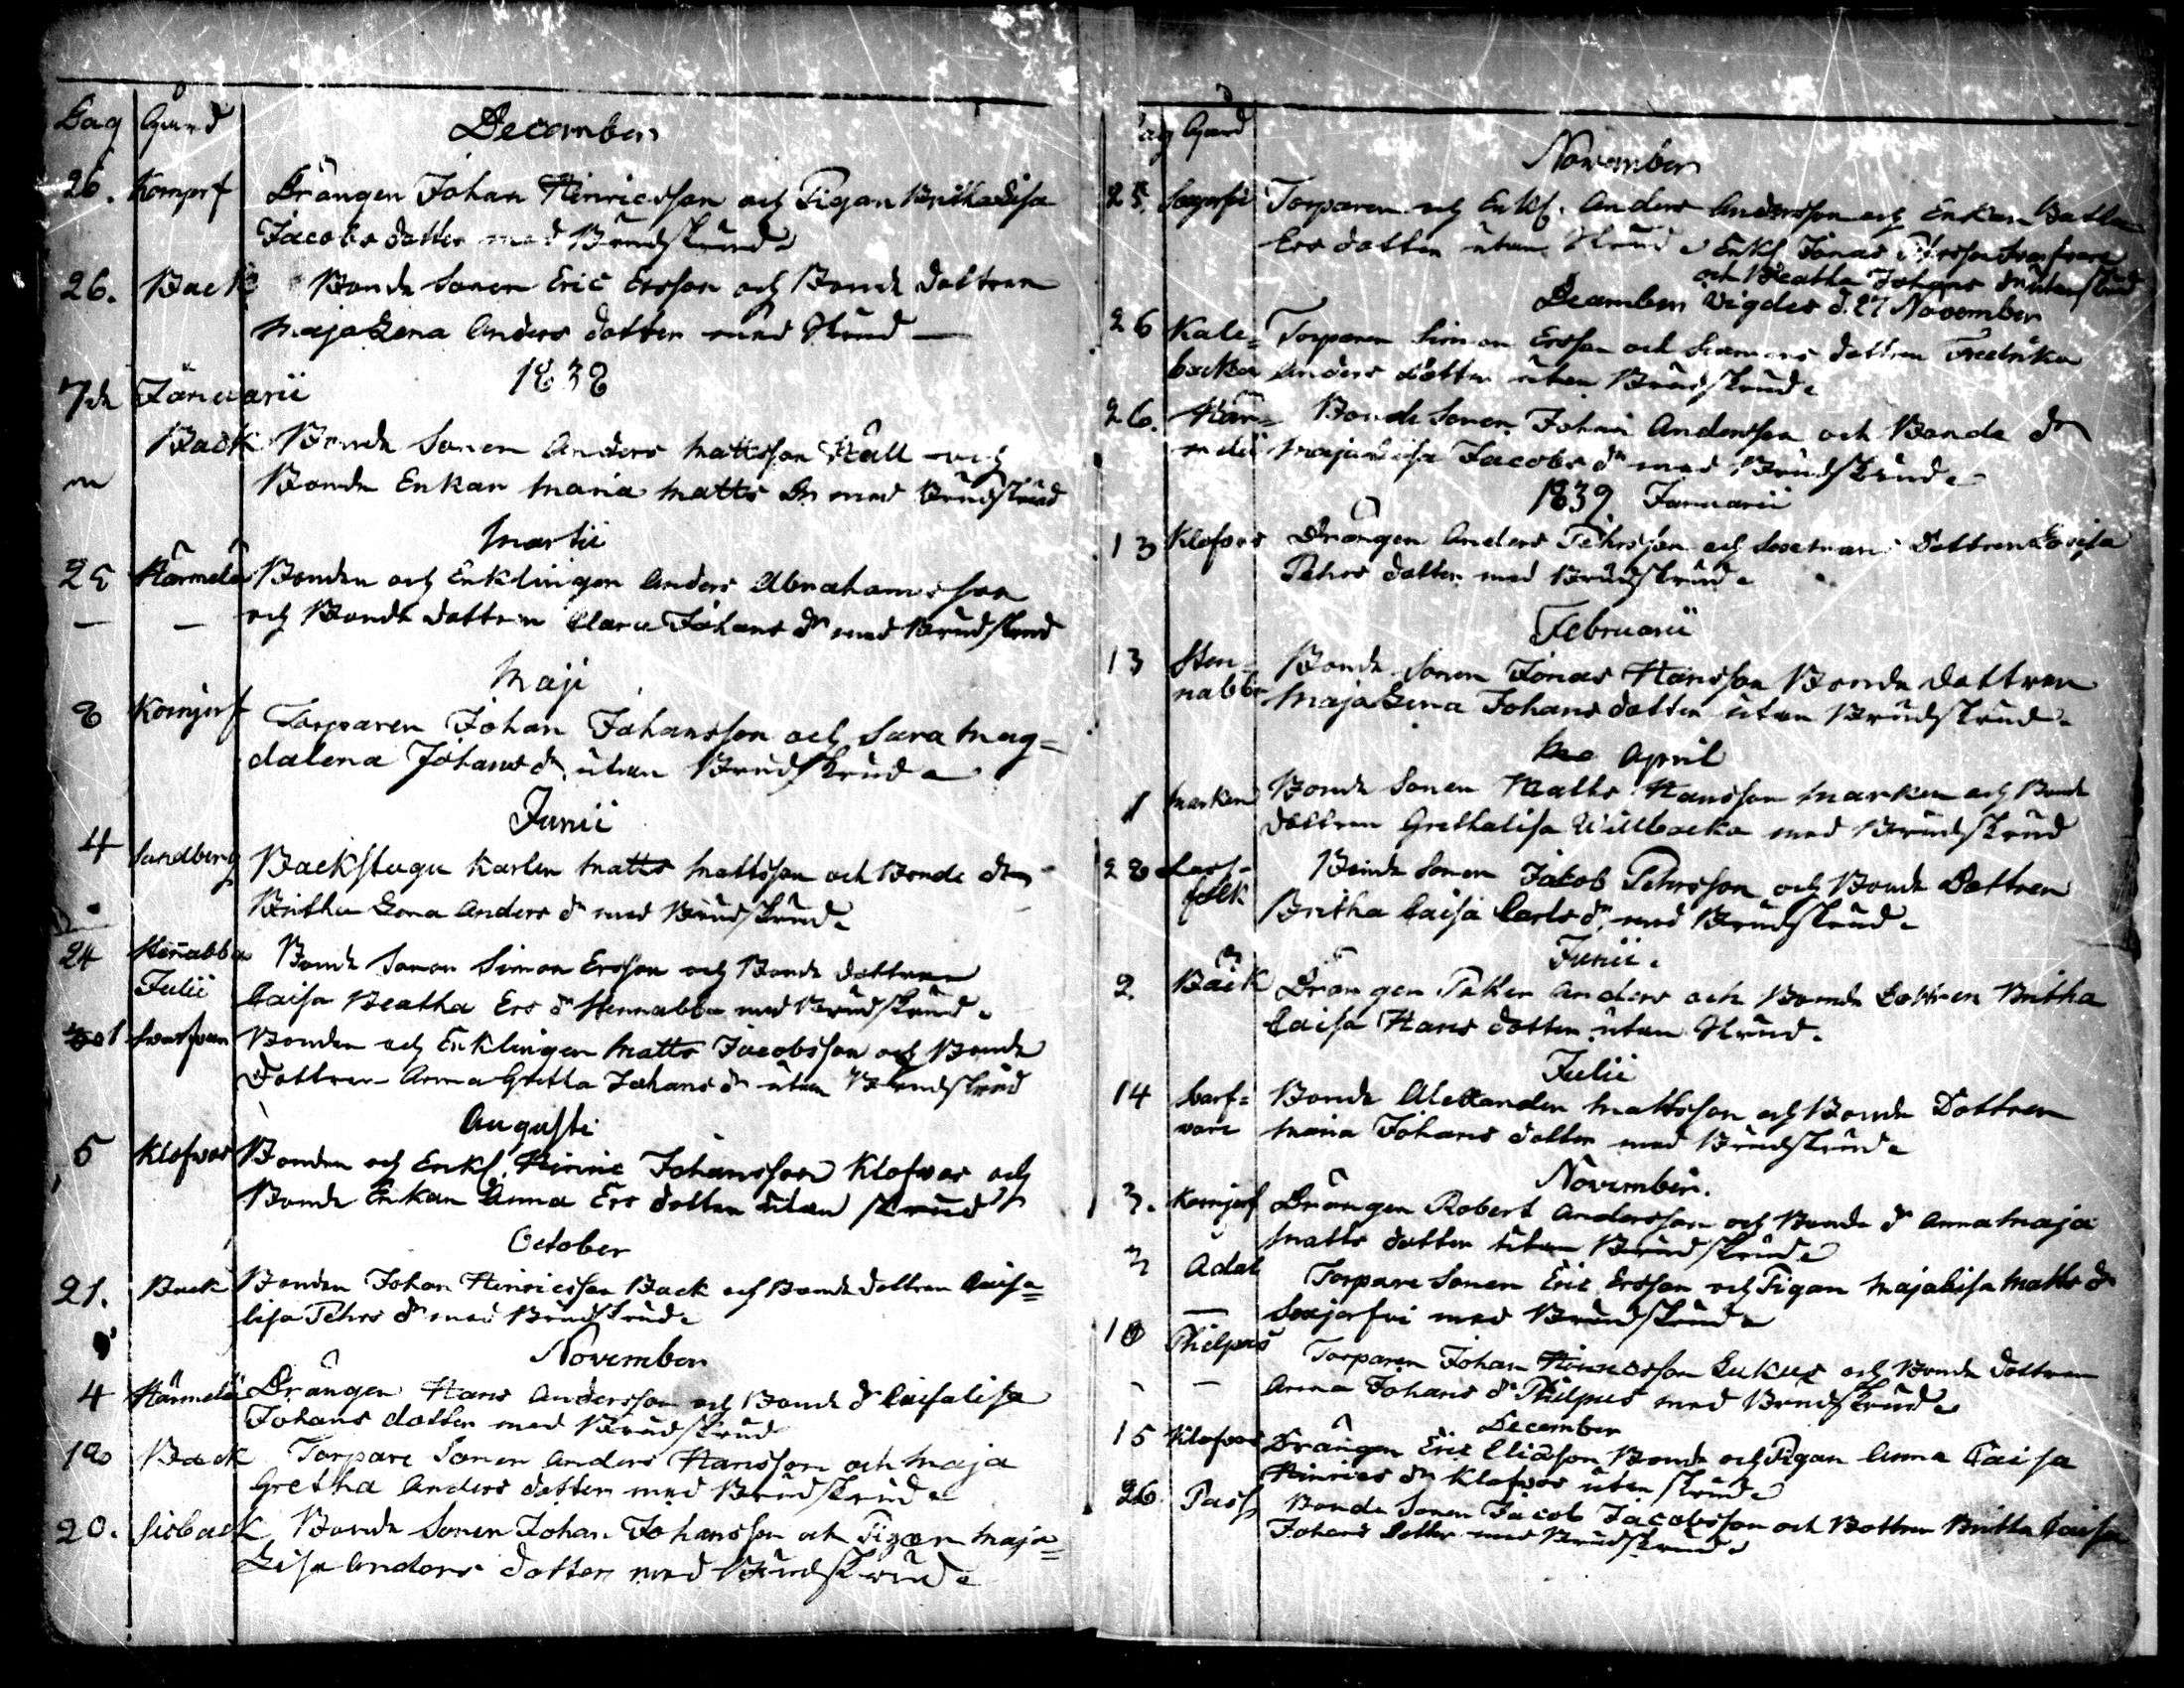 Dag Gård
December
26. Komjerf Drängen Johan Hinricsson och Pigan Brithalisa
Jacobs dotter med Brudskrud
26. Back Bonde Sonen Eric Ersson och Bonde dottren
Maja Lena Anders dotter med Skrud
1838
7de Januarii
Back Bonde Sonen Anders Mattsson Håll och
Bonde Enkan Maria Matts Dr med Brudskrud
Martii
25 Härmelä Bonden och Enklingen Anders Abrahamsson
och Bonde dottren Clara Johans dr med Brudskrud
Maji
8 Komjerf Torparen Johan Johansson och Sara Mag=
dalena Johans dr utan Brudskrud
Junii
4 Sandberg Backstugu Karlen Matts Mattsson och Bonde dr
Britha Lena Anders dr med Brudskrud
24 Stenabba Bonde Sonen Simon Ersson och Bonde dottren
Julii Caisa Beatha Ers dr Stennabba med Brudskrud
1 Svartsvan Bonden och Enklingen Matts Jacobsson och Bonde
Dottren Anna Gretta Johans dr utan Brudskrud
Augusti
5 Klofvos Bonden och Enkl. Hinric Johansson Klofvos och
Bonde Enkan Anna Ers dotter utan skrud
October
21. Back Bonden Johan Hinricsson Back och Bonde dottren Caisa=
lisa Pehrs dr med Brudskrud
November
4 Härmelä Drängen Hans Andersson och Bonde dr Caisalisa
Johans dotter med Brudskrud
Back Torpare Sonen Anders Hansson och Maja
Gretha Anders dotter med Brudskrud
20. Sisback Bonde Sonen Johan Johansson och Pigan Maja=
Lisa Anders dotter med Brudskrud
Dag Gård
November
25. Torparen och Enkl. Anders Andersson och Enkan
Ers dotter utan Skrud Enkl Jonas Pehrsson
och Beatha Johans dr utan skrud
December Vigdes d. 27 November
26 Kale= Torparen Simon Ersson och dottren Fredrika
backa Anders dotter utan Brudskrud
26. Här= Bonde Sonen Johan Andersson och Bonde dr
melä Maja Lisa Jacobs dr med Brudskrud
1839 Januarii
13 Klofvos Drängen Anders Pehrsson och dottren Lovisa
Pehrs dotter med Brudskrud
Februarii
13 Sten= Bonde Sonen Jonas Hansson Bonde dottren
nabba Maja Lena Johans dotter utan Brudskrud
April
1 Marken Bonde Sonen Matts Hansson Marken och Bonde
dottren Grethalisa Willbacka med Brudskrud
28 Lass=
folk Bonde Sonen Jacob Pehrsson och Bonde Dottren
Britha Caisa Carls dr med Brudskrud
Junii
2. Back Drängen Petter Anders och Bonde Dottren Britha
Caisa Hans dotter utan Skrud.
Julii
14 Svarf= Bonde Alexander Mattsson och Bonde Dottren
vare Maria Johans dotter med Brudskrud
November.
3. Komjerf Drängen Robert Andersson och Bonde dr Anna Maja
Matts dotter utan Brudskrud
3 Adat Torpare Sonen Eric Ersson och Pigan Majalisa Matts dr
Sexjerfvi med Brudskrud
10 Philpus Torparen Johan Hinricsson Lukus och Bonde dottren
Anna Johans dr Philpus med Brudskrud
December
15 Klofvos Drängen Eric Eliasson Bonde och Pigan Anna Caisa
Hinrics dr Klofvos utan skrud
26. Pass Bonde Sonen Jacob Jacobsson och Dottren Britha Caisa
Johans dotter med Brudskrud